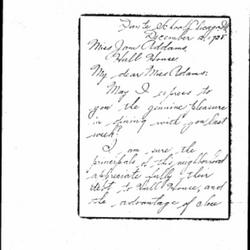 Dante School, Chicago
December 2, 1928
Miss Jane Addams,
Hull House.
My dear Miss Addams:
May I express to
you the genuine pleasure
in dining with you last
week?
I am sure the
principals of this neighborhood
appreciate fully their
debt to Hull House, and
the advantage of close